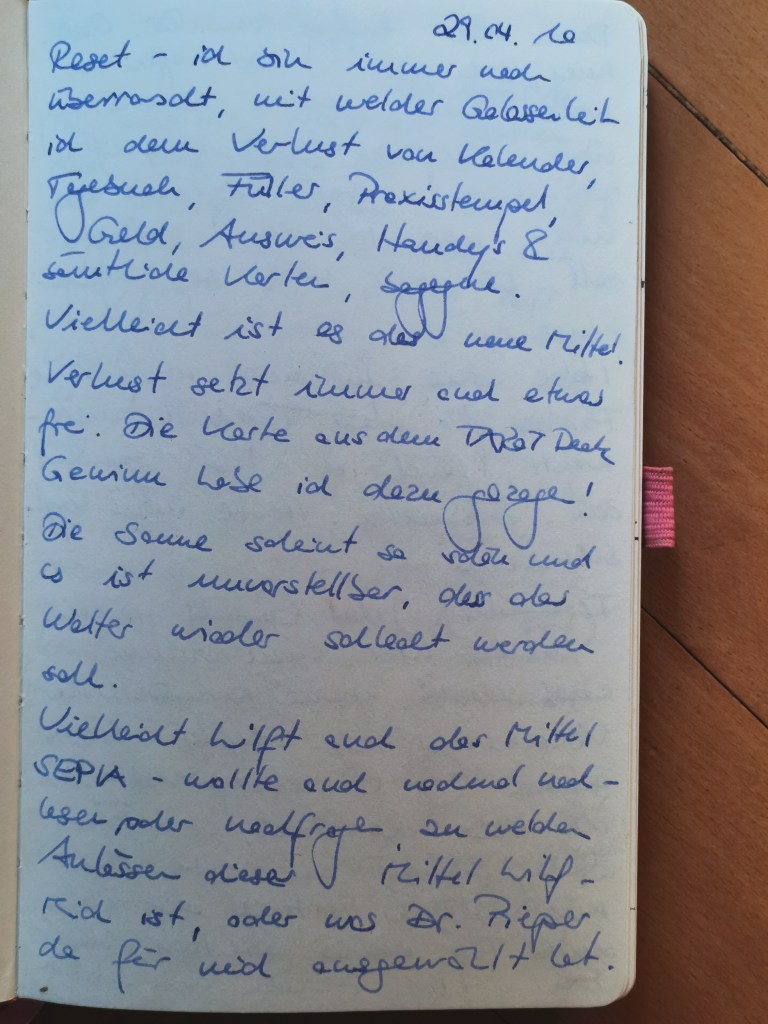 29.04.10
Reset – ich bin immer noch
überrascht, mit welcher Gelassenheit
ich dem Verlust von Kalender,
Tagebuch, Füller, Praxisstempel,
Geld, Ausweis, Handys &
sämtliche Karten, begegne.
Vielleicht ist es das neue Mittel.
Verlust setzt immer auch etwas
frei. Die Karte aus dem TAROT Deck
Gewinn habe ich dazu gezogen!
Die Sonne scheint so schön und
es ist unvorstellbar, dass das
Wetter wieder schlecht werden
soll.
Vielleicht hilft auch das Mittel
SEPIA – wollte auch nochmal nach-
lesen, oder nachfragen, zu welchen
Anlässen dieses Mittel hilf-
reich ist, oder was Dr. Pieper
da für mich ausgewählt hat.